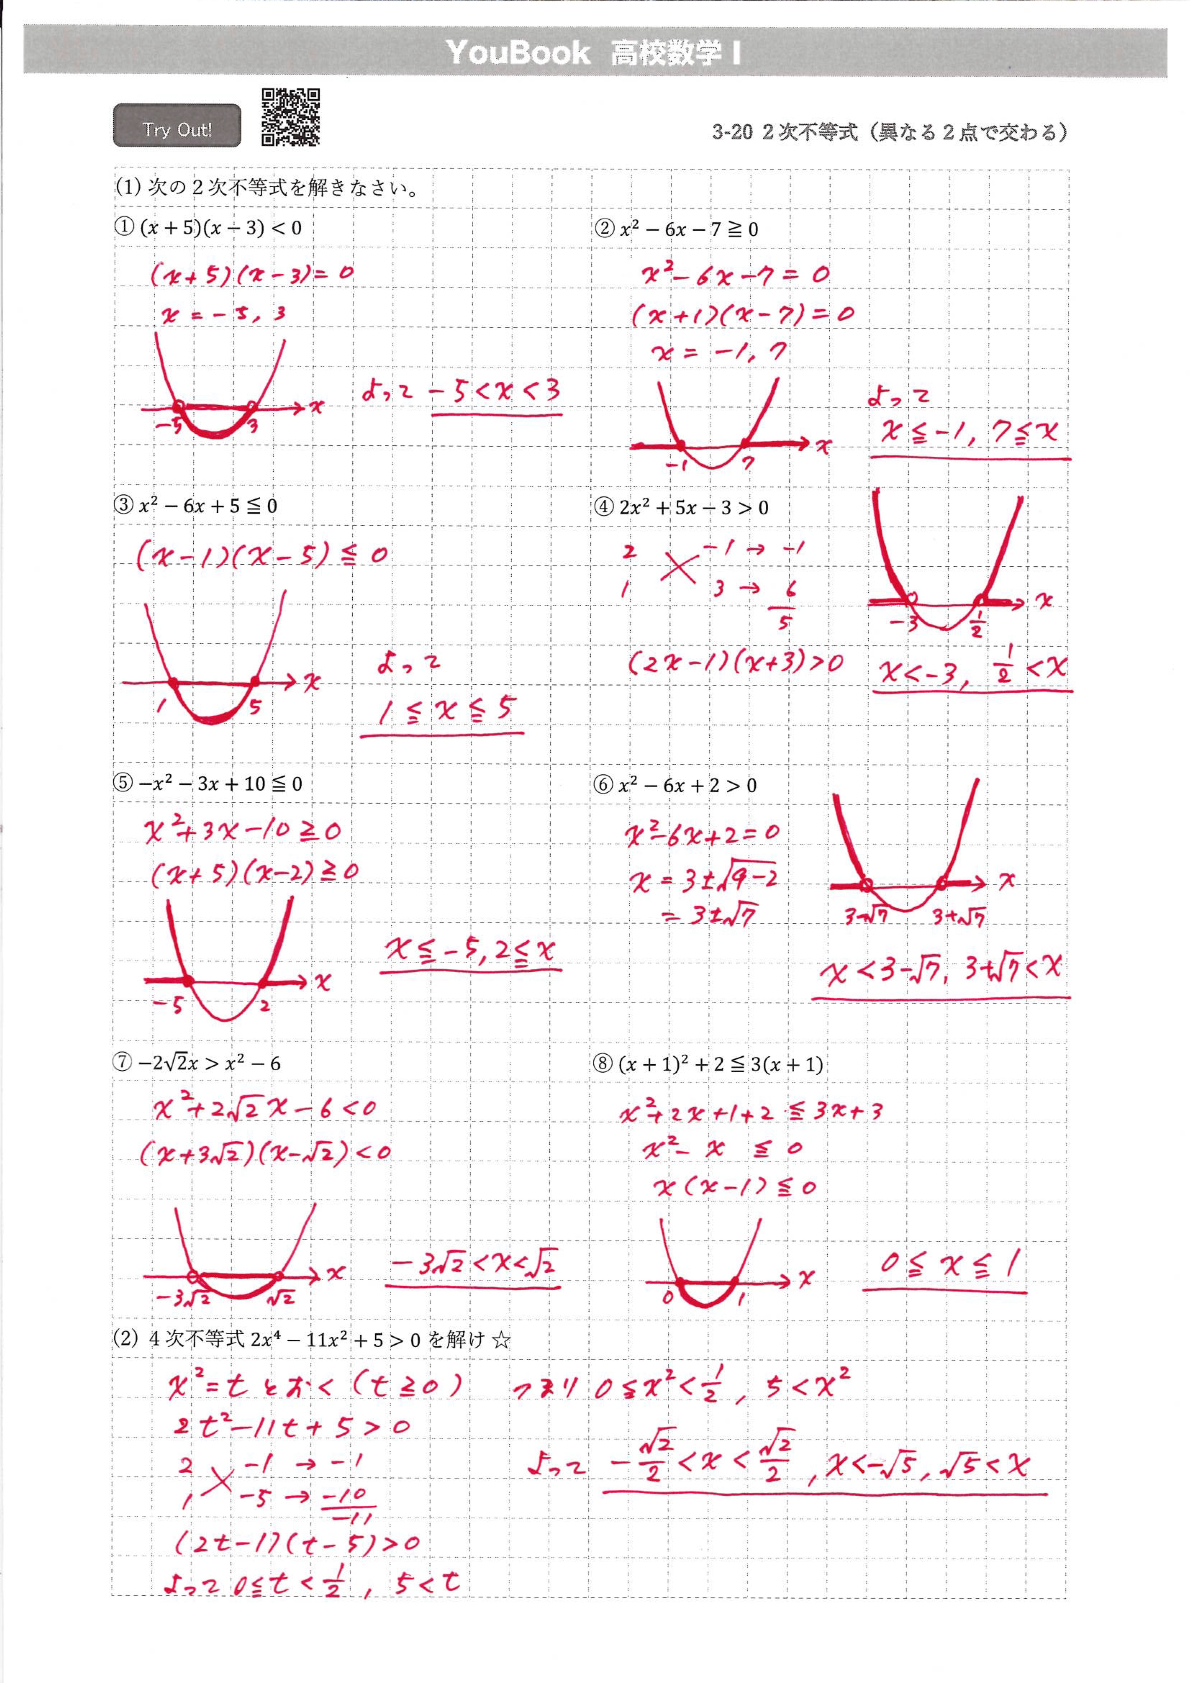 YouBook 高校数学 I
Try Out!
3-20 2次不等式（異なる2点で交わる）
(1) 次の2次不等式を解きなさい。
① (x + 5)(x − 3) < 0
(x+5)(x-3)=0
x = -5, 3
-5 3 x
よって -5<x<3
② x² − 6x − 7 ≧ 0
x²-6x-7=0
(x+1)(x-7)=0
x = -1, 7
-1 7 x
よって
x≦-1, 7≦x
③ x² − 6x + 5 ≦ 0
(x-1)(x-5)≦0
1 5 x
よって
1≦x≦5
④ 2x² + 5x − 3 > 0
2 -1 → -1
1 3 → 6
5
(2x-1)(x+3)>0
-3 1/2 x
x<-3, 1/2<x
⑤ −x² − 3x + 10 ≦ 0
x²+3x-10≧0
(x+5)(x-2)≧0
-5 2 x
x≦-5, 2≦x
⑥ x² − 6x + 2 > 0
x²-6x+2=0
x = 3±√9-2
= 3±√7
3-√7 3+√7 x
x<3-√7, 3+√7<x
⑦ −2√2x > x² − 6
x²+2√2x-6<0
(x+3√2)(x-√2)<0
-3√2 √2 x
-3√2<x<√2
⑧ (x + 1)² + 2 ≦ 3(x + 1)
x²+2x+1+2≦3x+3
x²-x ≦ 0
x(x-1)≦0
0 1 x
0≦x≦1
(2) 4次不等式 2x⁴ − 11x² + 5 > 0 を解け ☆
x²=tとおく (t≧0)
2t²-11t+5>0
2 -1 → -1
1 -5 → -10
-11
(2t-1)(t-5)>0
よって 0≦t<1/2, 5<t
つまり 0≦x²<1/2, 5<x²
よって -√2/2<x<√2/2, x<-√5, √5<x